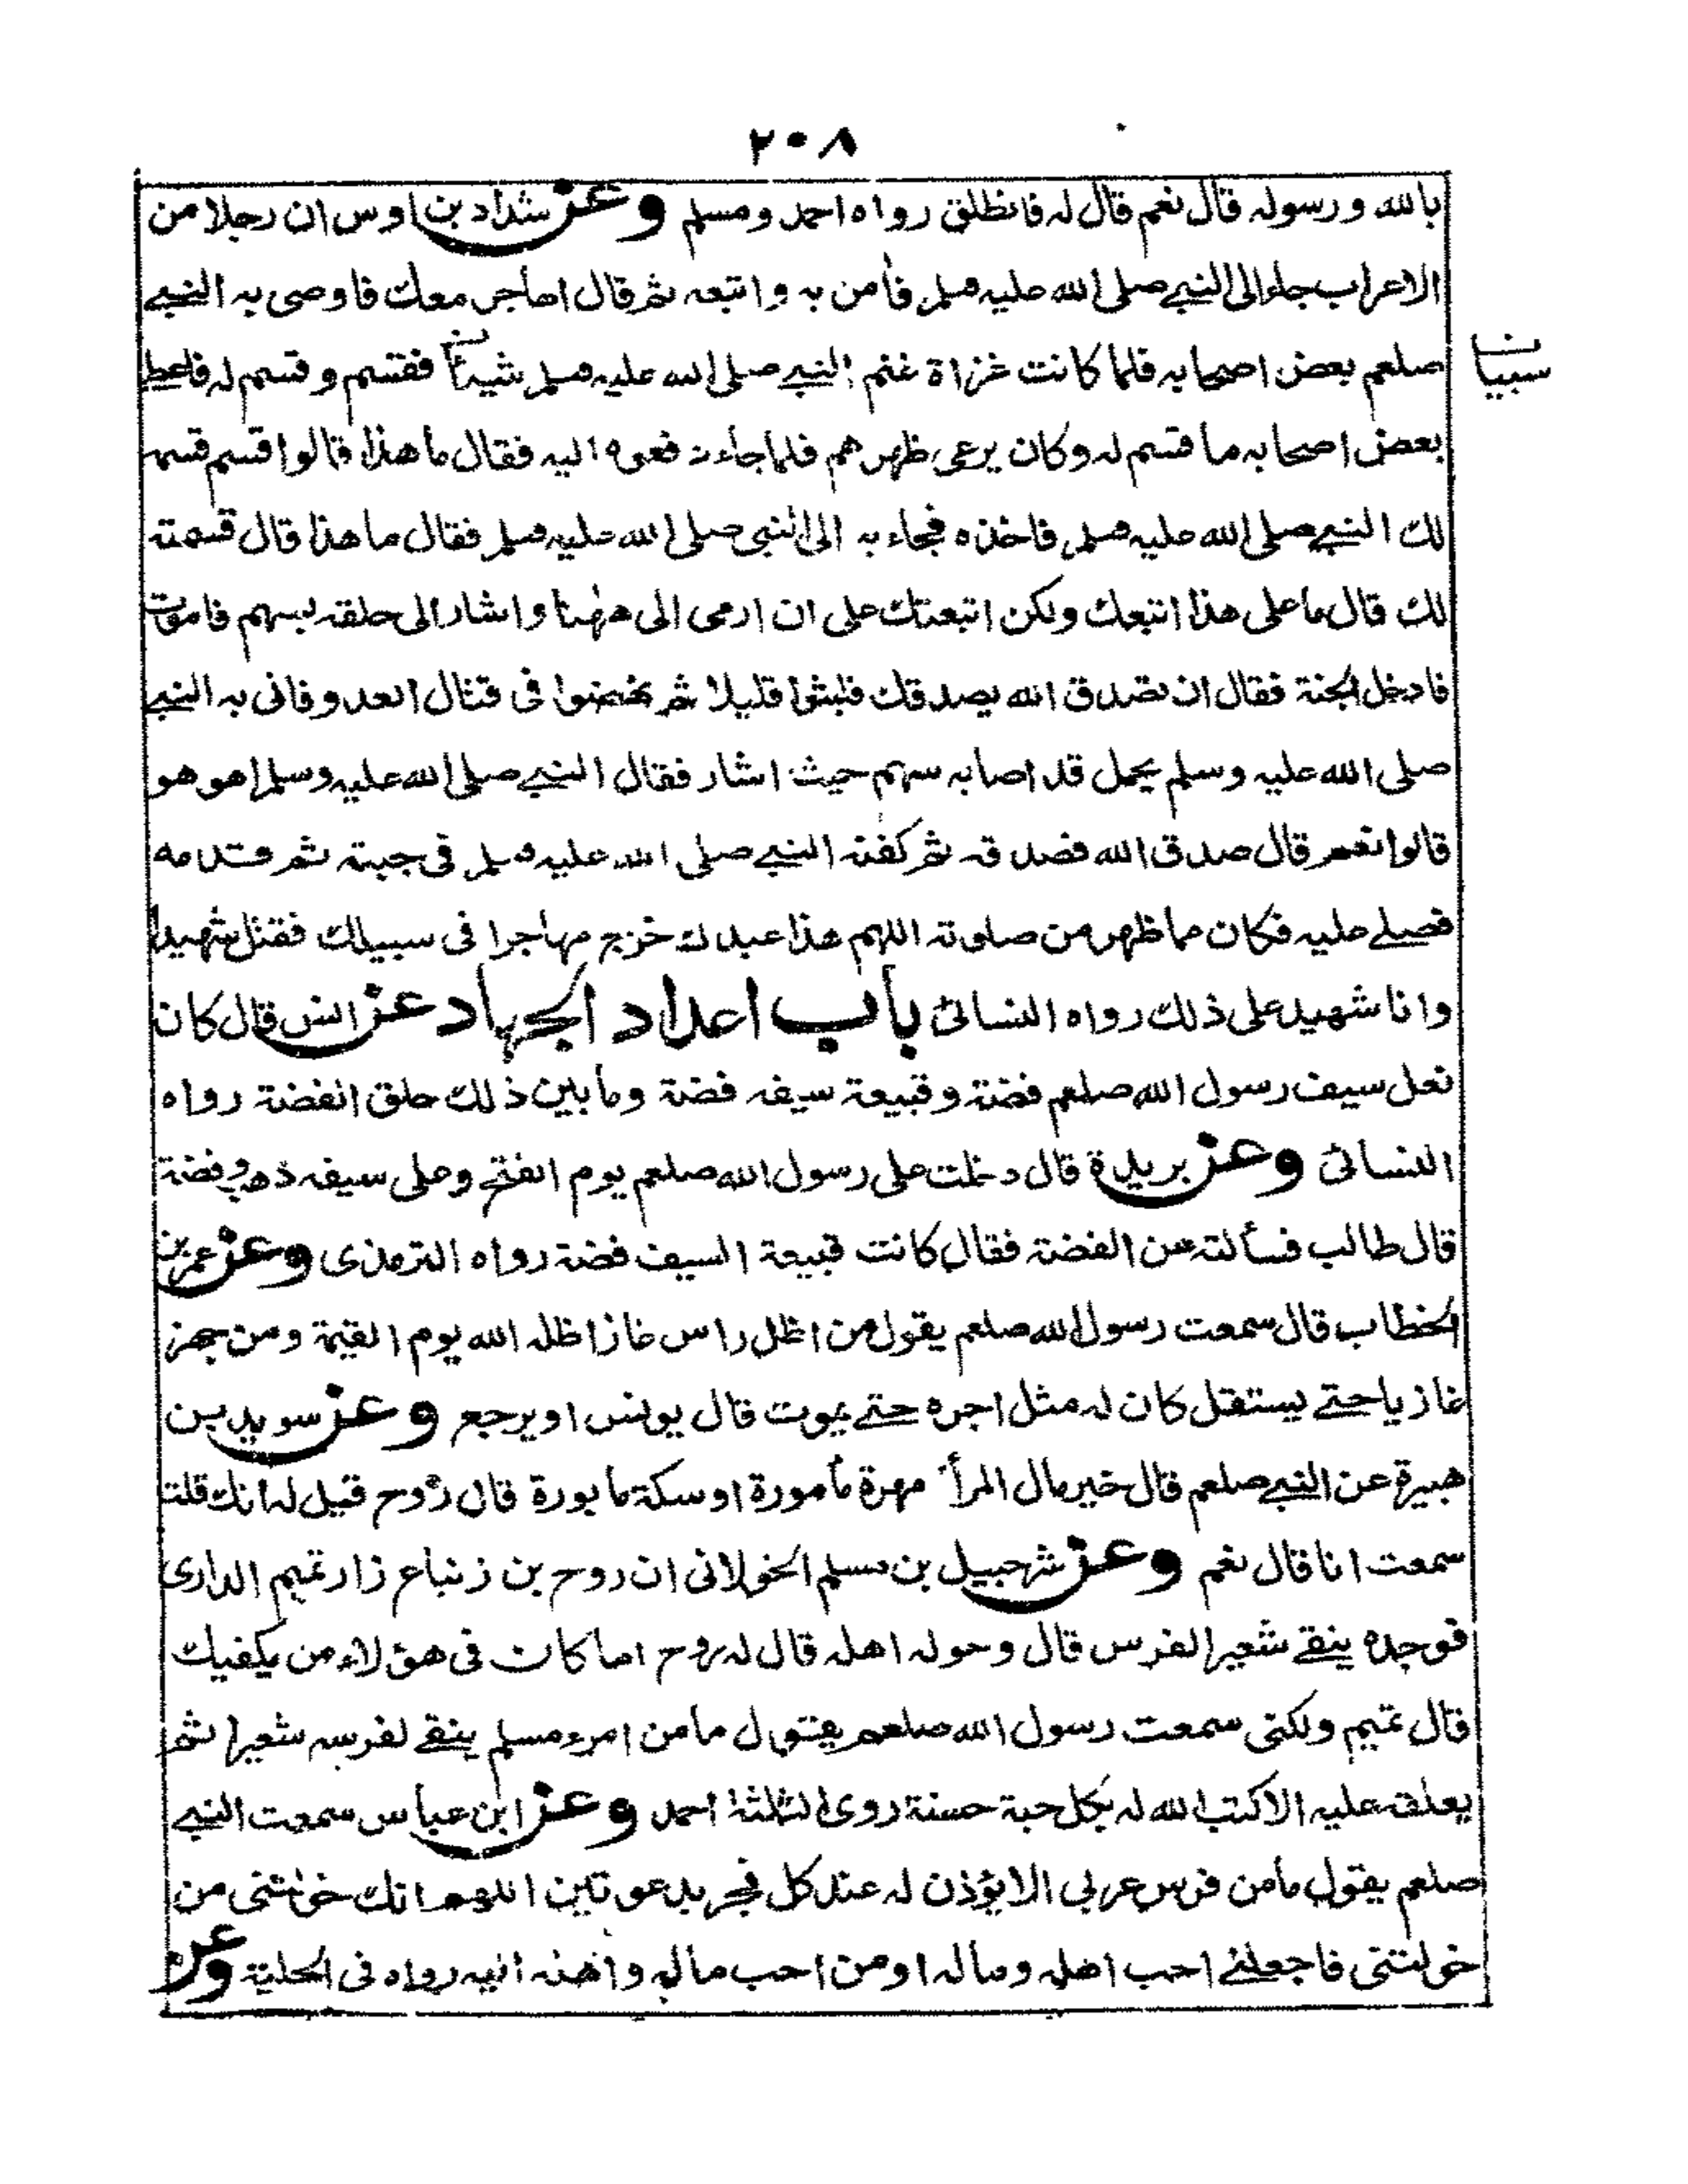 ٢٠٨
بالله ورسوله قال نعم قال له فانطلق رواه احمد ومسلم وعن شداد بن اوس ان رجلا من
الاعراب جاء الى النبي صلى الله عليه وسلم فأمن به واتبعه ثم قال اهاجر معك فاوصى به النبي
صلعم بعض اصحابه فلما كانت غزاة غنم النبي صلى الله عليه وسلم شيئا فقسم وقسم له فاعطى
سبيا
بعض اصحابه ما قسم له وكان يرعى ظهرهم فلما جاء دفعوه اليه فقال ما هذا قالوا قسم قسمه
لك النبي صلى الله عليه وسلم فاخذه فجاء به الى النبي صلى الله عليه وسلم فقال ما هذا قال قسمته
لك قال ما على هذا اتبعك ولكن اتبعتك على ان ارمى الى ههنا واشار الى حلقه بسهم فاموت
فادخل الجنة فقال ان تصدق الله يصدقك فلبثوا قليلا ثم نهضوا فى قتال العدو فاتى به النبي
صلى الله عليه وسلم يحمل قد اصابه سهم حيث اشار فقال النبي صلى الله عليه وسلم اهو هو
قالوا نعم قال صدق الله فصدقه ثم كفنه النبي صلى الله عليه وسلم فى جبته ثم قدمه
فصلى عليه فكان مما ظهر من صلوته اللهم هذا عبدك خرج مهاجرا فى سبيلك فقتل شهيدا
وانا شهيد على ذلك رواه النسائى باب اعداد الجهاد عن انس قال كان
نعل سيف رسول الله صلعم فضة وقبيعة سيفه فضة وما بين ذلك حلق الفضة رواه
النسائى وعن بريدة قال دخلت على رسول الله صلعم يوم الفتح وعلى سيفه ذهب وفضة
قال طالب فسألته عن الفضة فقال كانت قبيعة السيف فضة رواه الترمذى وعن عمر بن
الخطاب قال سمعت رسول الله صلعم يقول من اظل راس غاز اظله الله يوم القيمة ومن جهز
غازيا حتى يستقل كان له مثل اجره حتى يموت قال يونس او يرجع وعن سويد بن
هبيرة عن النبي صلعم قال خير مال المرأ مهرة مأمورة او سكة مابورة قال روح قيل له انك قلت
سمعت انا قال نعم وعن شرحبيل بن مسلم الخولانى ان روح بن زنباع زار تميم الدارى
فوجده ينقى شعير الفرس قال وحوله اهله قال له روح اما كان فى هؤلاء من يكفيك
قال تميم ولكنى سمعت رسول الله صلعم يقول ما من امرء مسلم ينقى لفرسه شعيرا ثم
يعلفه عليه الا كتب الله له بكل حبة حسنة روى الثلثة احمد وعن ابن عباس سمعت النبي
صلعم يقول ما من فرس عربى الا يؤذن له عند كل فجر بدعوتين اللهم انك خولتنى من
خولتنى فاجعلنى احب اهله وماله او من احب ماله واهله اليه رواه فى الحلية وعن